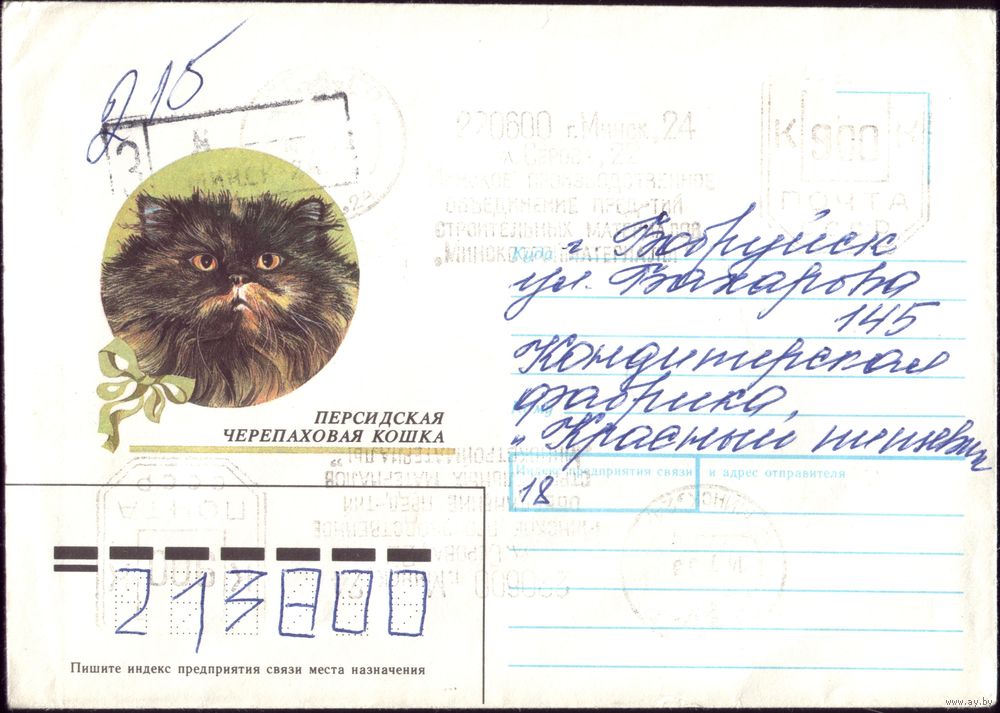 2 15
220600 г.Минск, 24
МИНСКОЕ ПРОИЗВОДСТВЕННОЕ
ОБЪЕДИНЕНИЕ ПРЕДР-ТИЙ
СТРОИТЕЛЬНЫХ МАТЕРИАЛОВ
К 900 К
ПОЧТА
Куда
г. Бобруйск
ул. Бахарова
145
Кондитерская
фабрика,
"Красный пищевик
ПЕРСИДСКАЯ
ЧЕРЕПАХОВАЯ КОШКА
Индекс предприятия связи и адрес отправителя
18
213800
Пишите индекс предприятия связи места назначения
www.ay.by